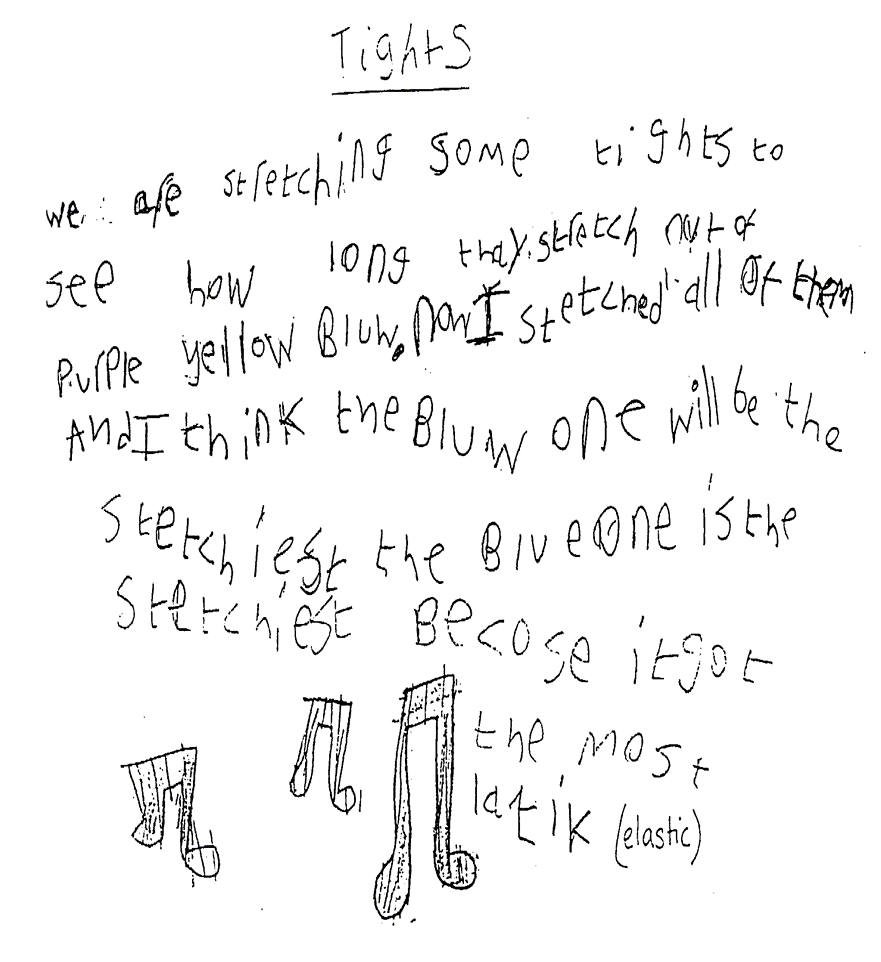 Tights
we are stretching some tights to
see how long thay stretch out of
Purple yellow Bluw. Now I stetched all of them
And I think the Bluw one will be the
stetchiest the Blue one is the
stetchiest Becose it got
the most
latik (elastic)